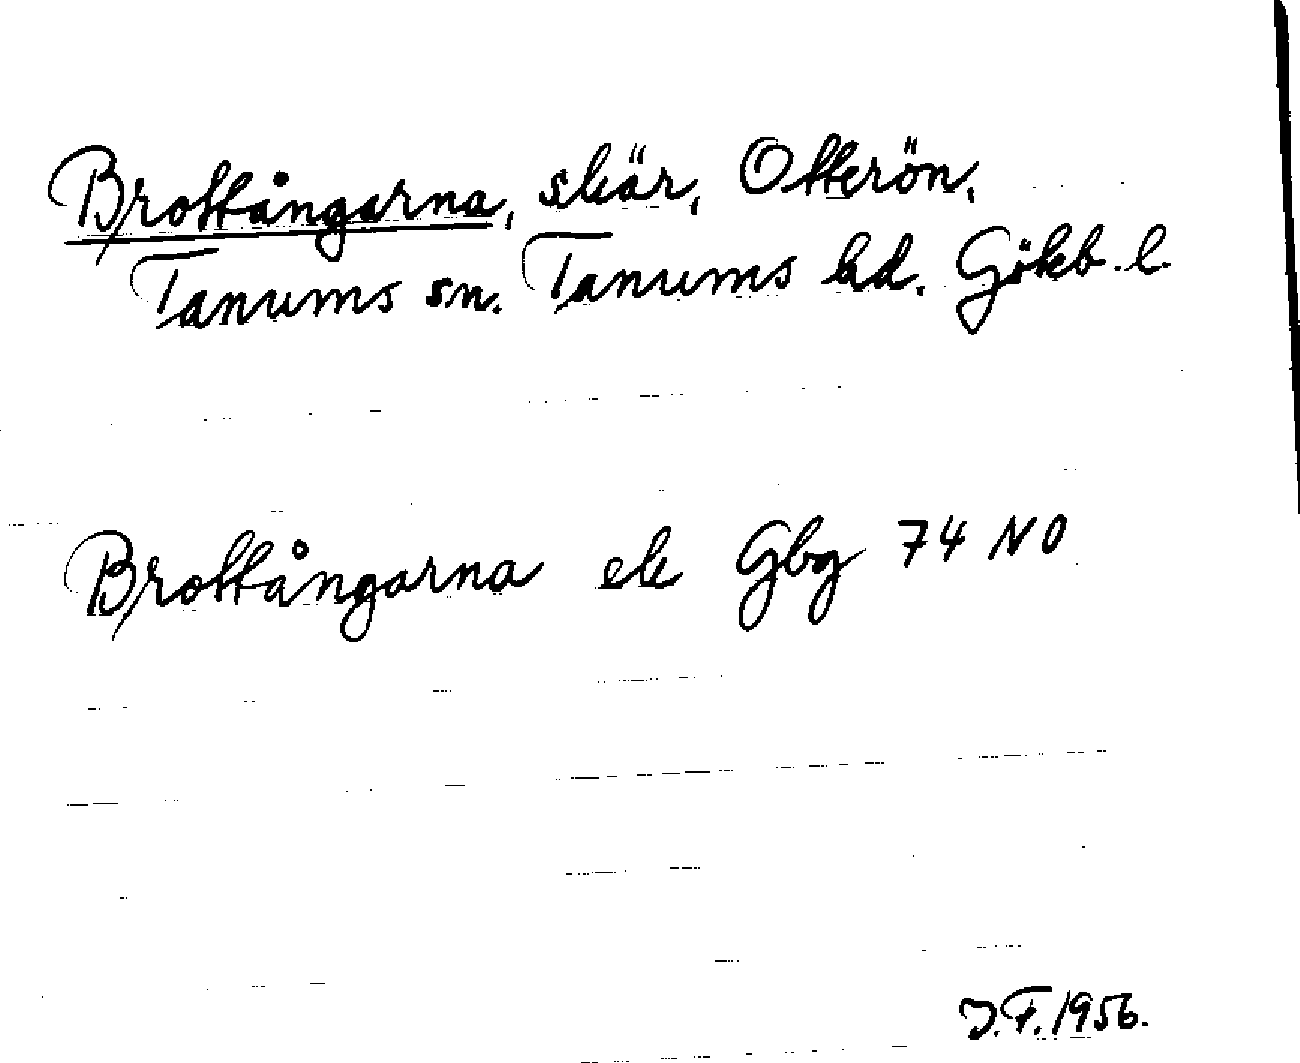 Brottångarna, skär, Otterön,
Tanums sn. Tanums hd. Gökb. l.
Brottångarna ek Gbg 74 NO
J.F. 1956.